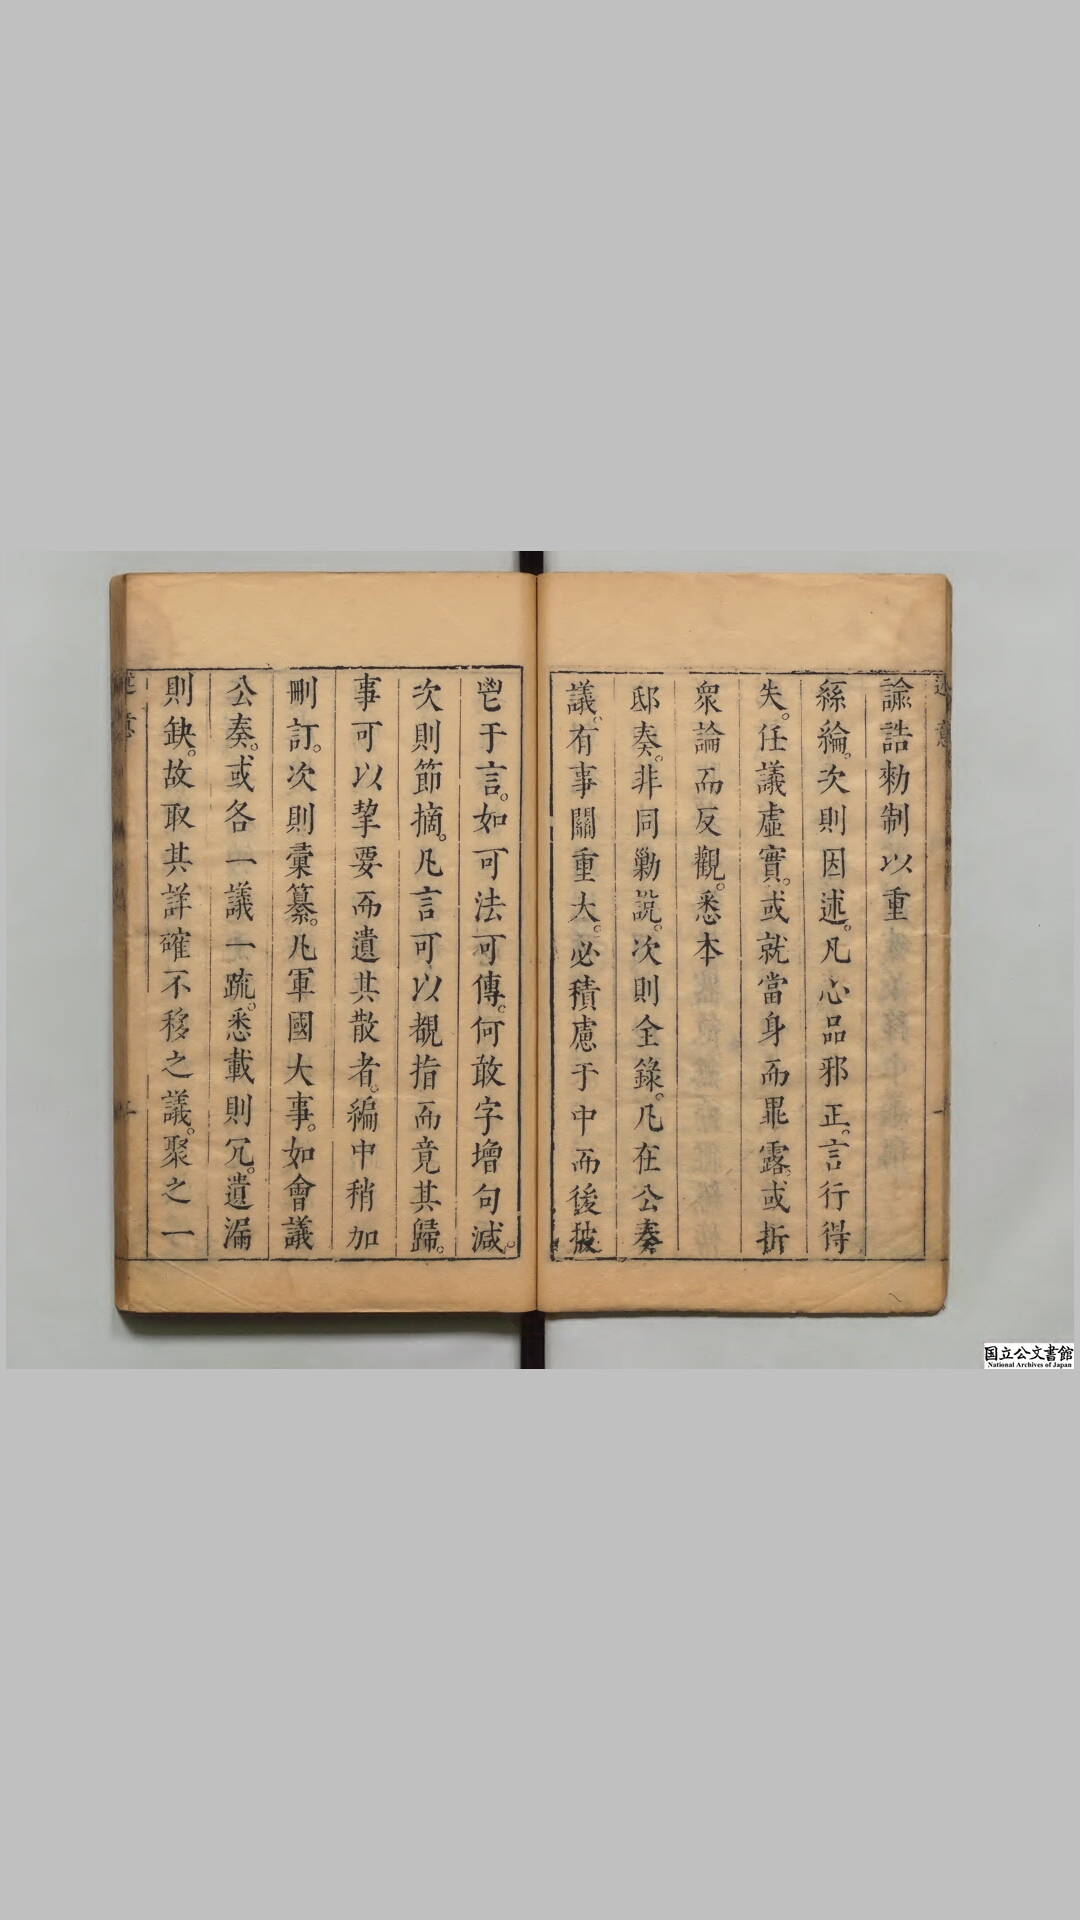 諭誥勑制以重
絲綸。次則因述。凡心品邪正。言行得
失。任議虛實。或就當身而畢露。或折
衆論而反觀。悉本
邸奏。非同勦説。次則全錄。凡在公奏
議。有事關重大。必積慮于中而後披
鬯于言。如可法可傳。何敢字增句減。
次則節摘。凡言可以覩指而竟其歸。
事可以挈要而遺其散者。編中稍加
刪訂。次則彙纂。凡軍國大事。如會議
公奏。或各一議一疏。悉載則冗。遺漏
則缺。故取其詳確不移之議。聚之一
国立公文書館
National Archives of Japan